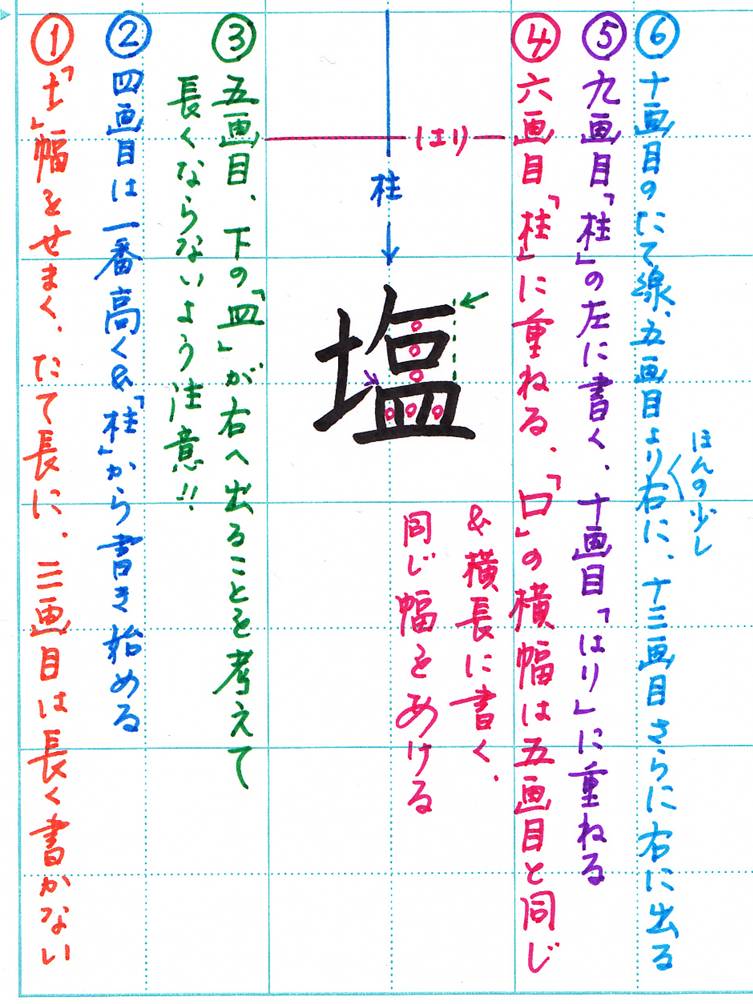 ①「土」幅をせまく、たて長に、三画目は長く書かない
②四画目は一番高く&「柱」から書き始める
③五画目、下の「皿」が右へ出ることを考えて
長くならないよう注意!!
はり
柱
塩
④六画目「柱」に重ねる、「口」の横幅は五画目と同じ
&横長に書く、
同じ幅をあける
⑤九画目「柱」の左に書く、十画目「はり」に重ねる
⑥十画目のたて線、五画目より右に、十三画目さらに右に出る
ほんの少し